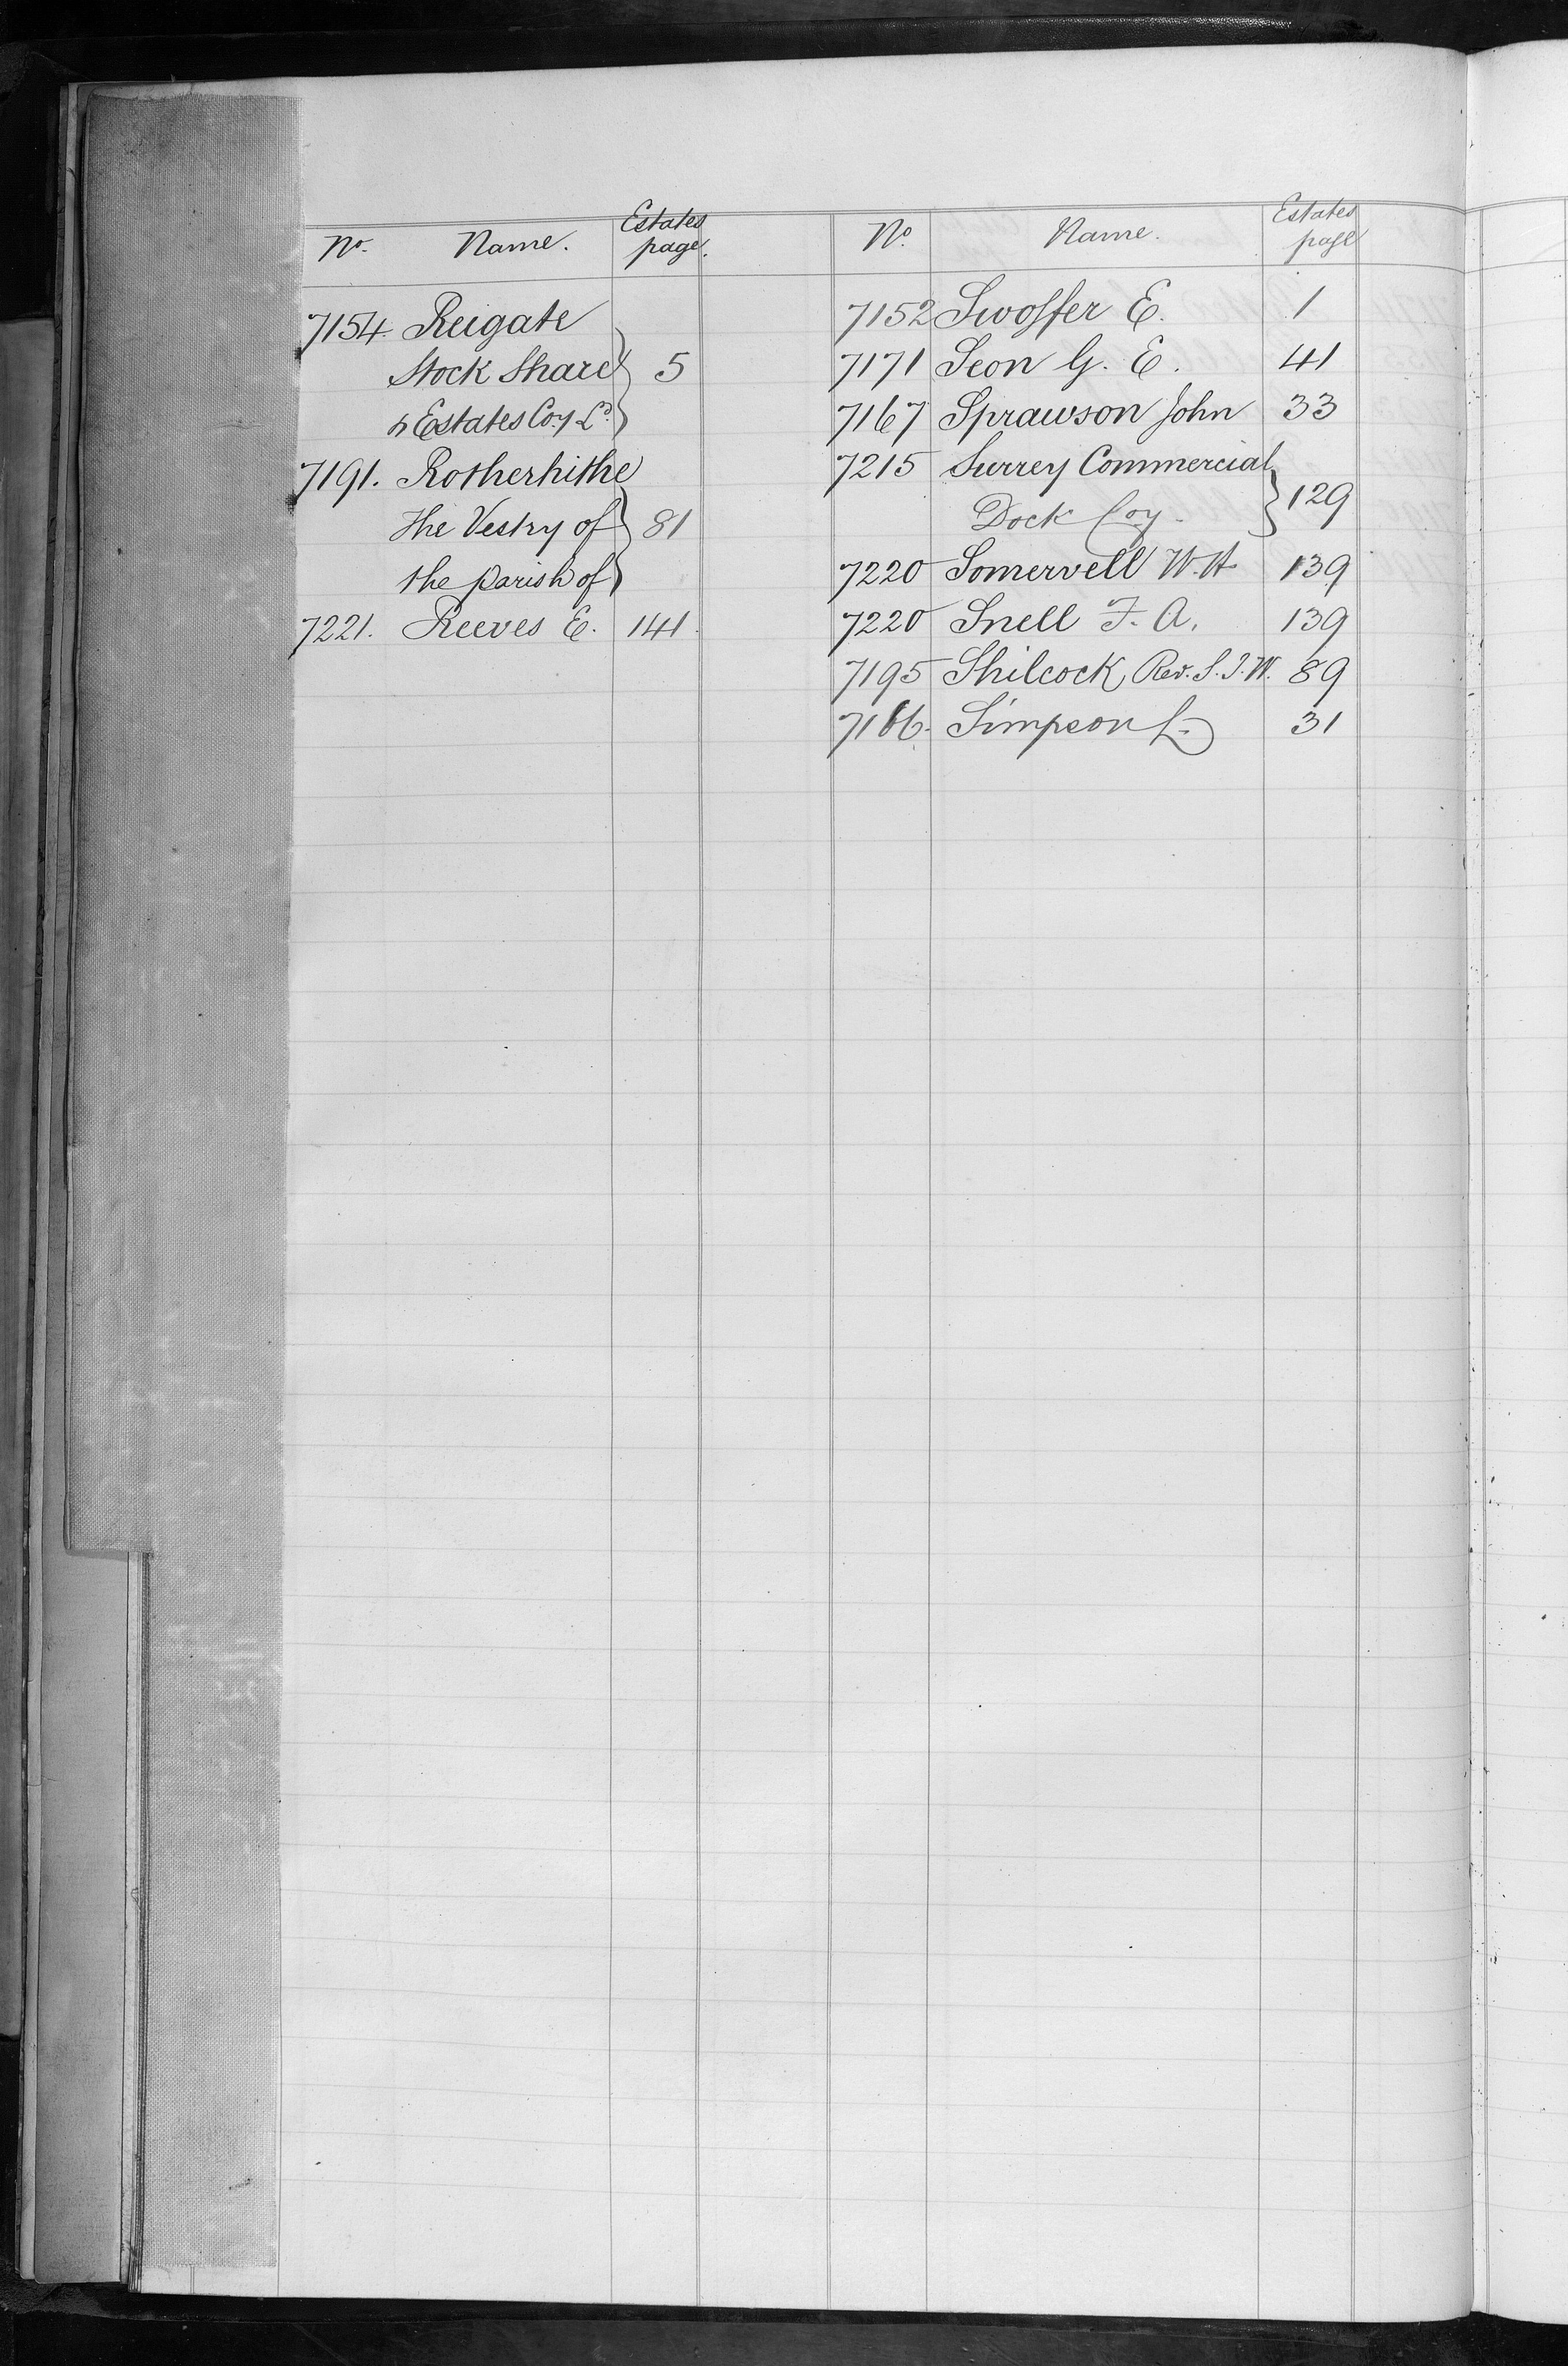 No. Name. Estates page.
7154. Reigate
Stock Share } 5
& Estates Coy Ld.
7191. Rotherhithe
The Vestry of } 81
the parish of
7221. Reeves E. 141.
No. Name. Estates page
7152 Swoffer E. 1
7171 Seon G. E. 41
7167 Sprawson John 33
7215 Surrey Commercial
Dock Coy. } 129
7220 Somervell W. H 139
7220 Snell F. A. 139
7195 Shilcock Rev. S. J. W. 89
7166. Simpson L. 31